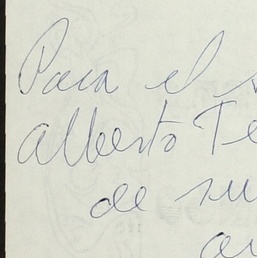 Para el
Alberto Te
de su